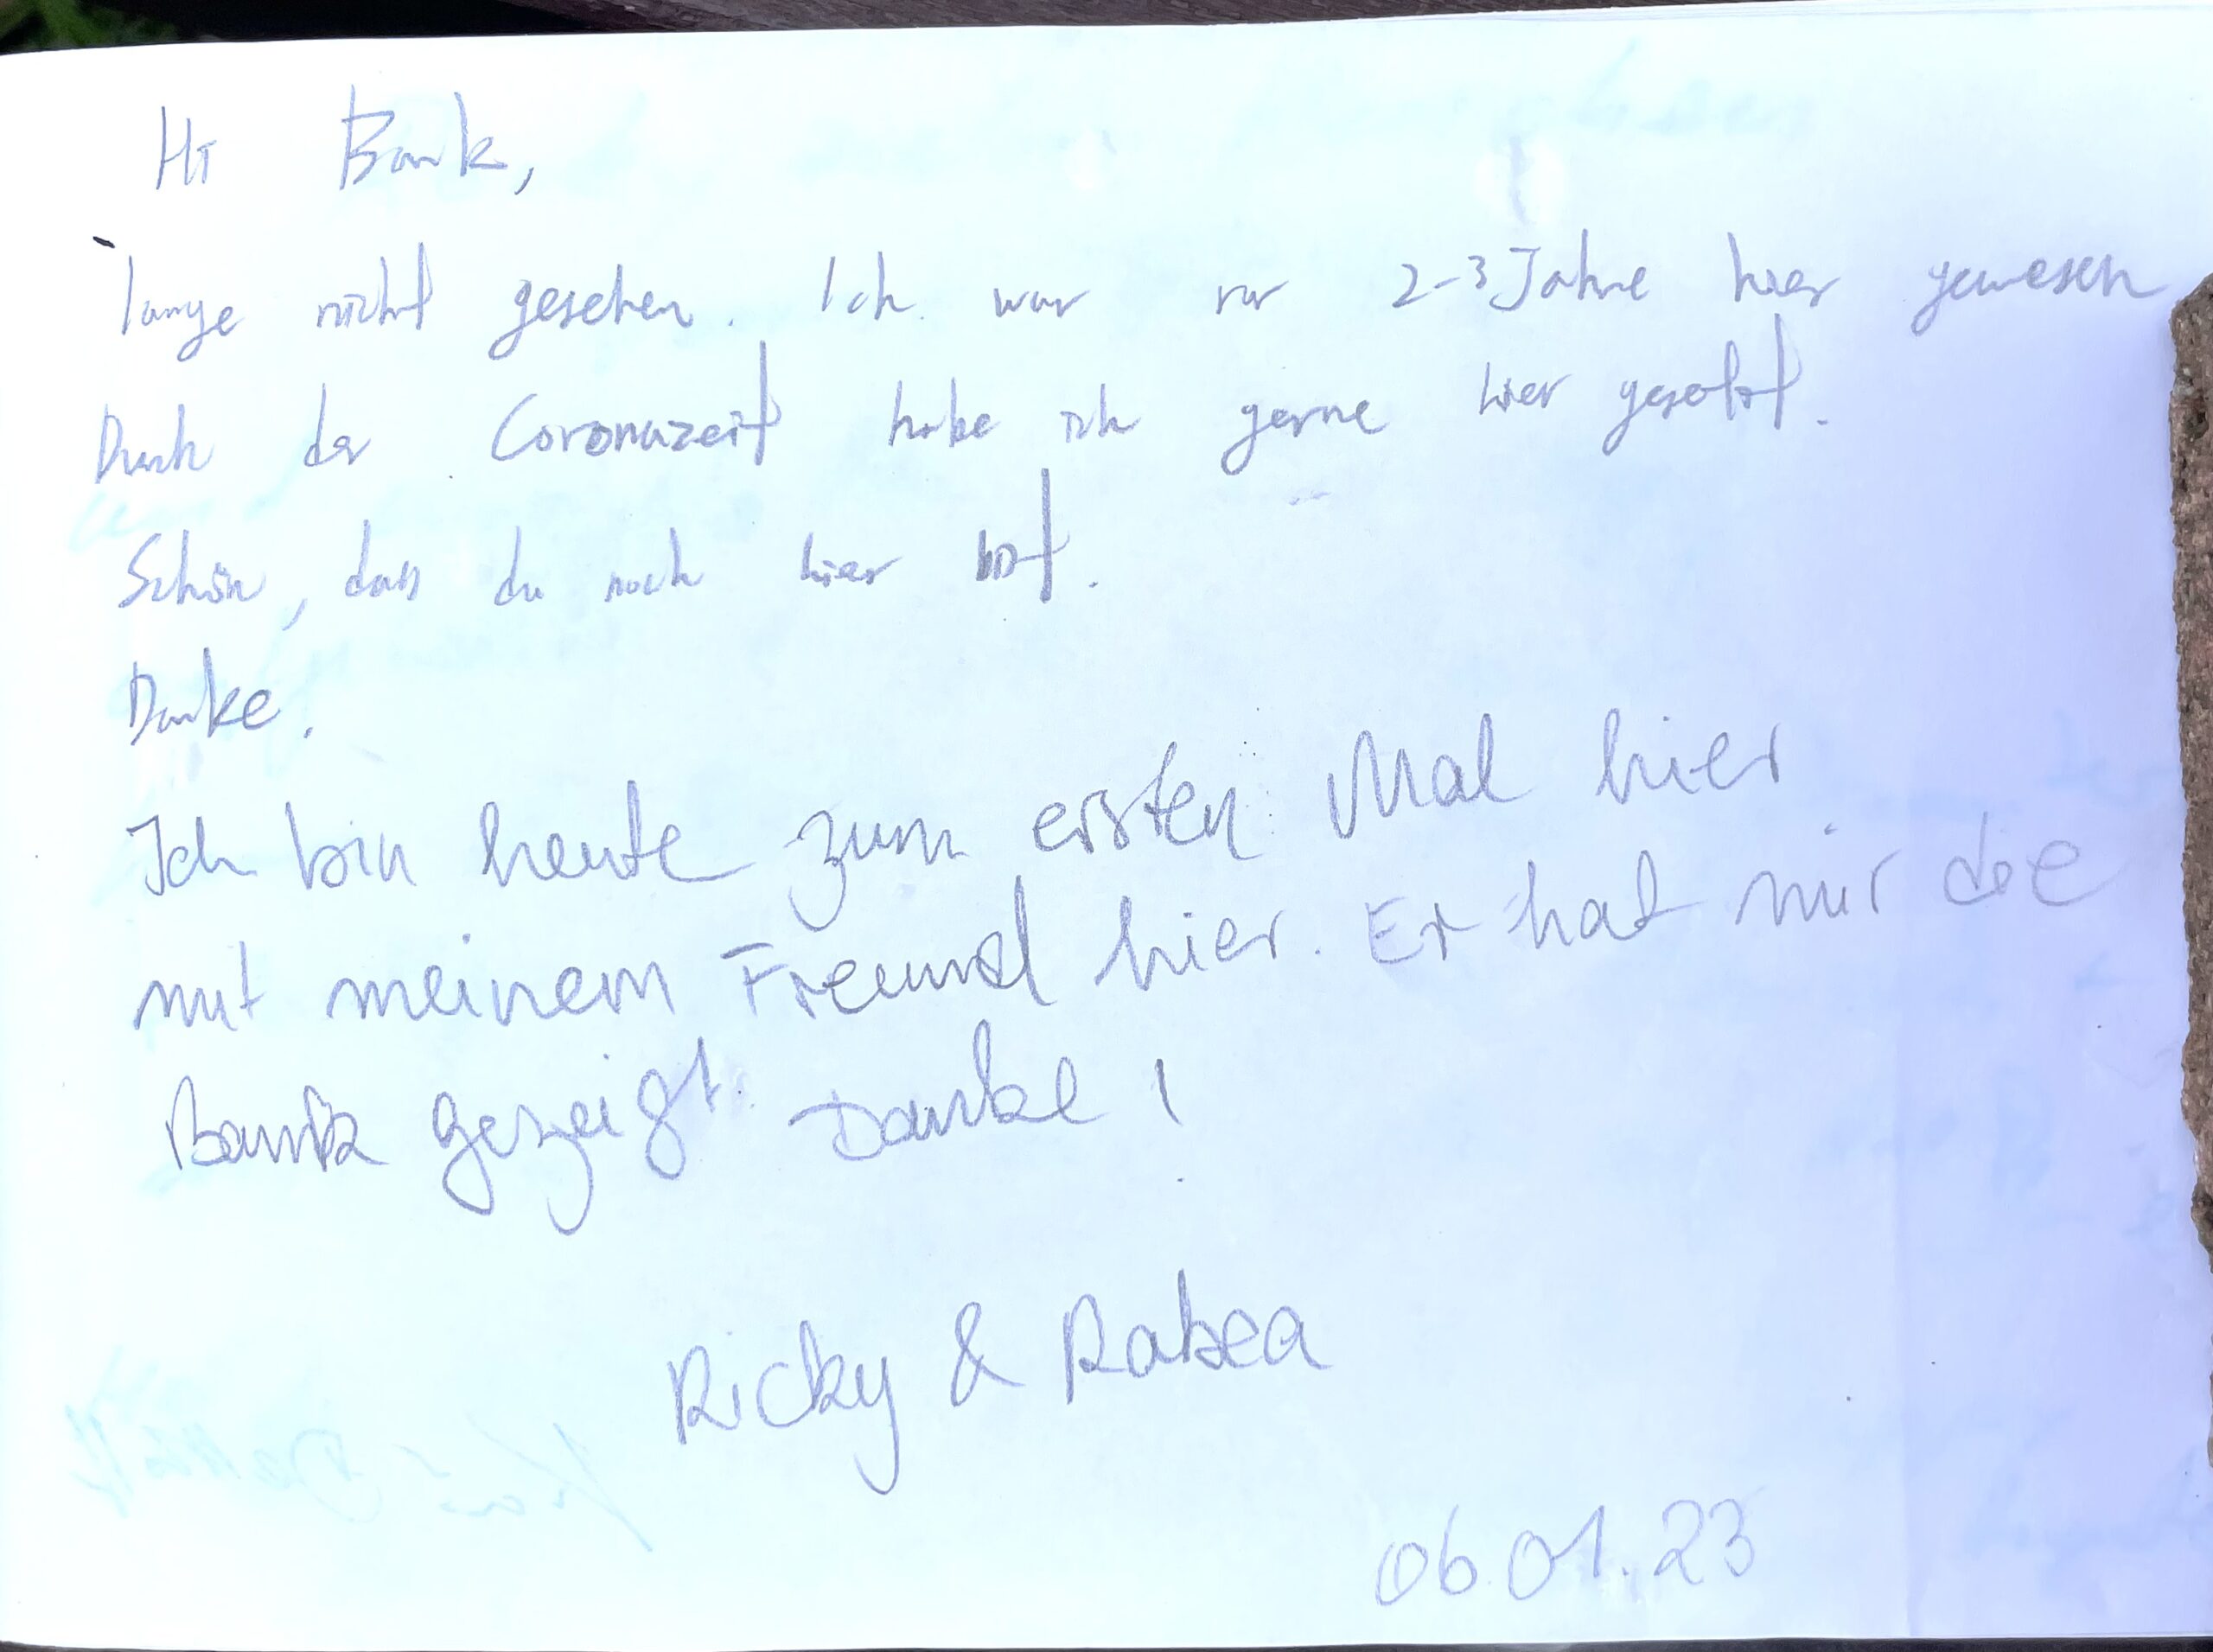 Hi Bank,
lange nicht gesehen. Ich war vor 2-3 Jahre hier gewesen
Durch der Coronazeit habe ich gerne hier gesetzt.
Schön, dass du noch hier bist.
Danke.
Ich bin heute zum ersten Mal hier
mit meinem Freund hier. Er hat mir die
Bank gezeigt. Danke!
Ricky & Rabea
06.01.23